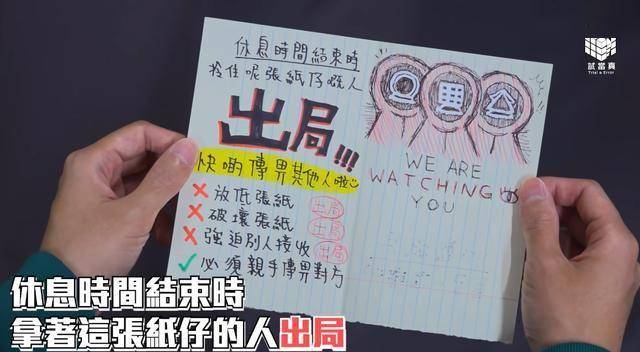 休息時間結束時
拎住呢張紙仔嘅人
出局!!!
快啲傳畀其他人啦
✗ 放低張紙 出局
✗ 破壞張紙 出局
✗ 強迫別人接收 出局
✓ 必須親手傳畀對方
WE ARE
WATCHING
YOU
試當真
Trial & Error
休息時間結束時
拿著這張紙仔的人出局